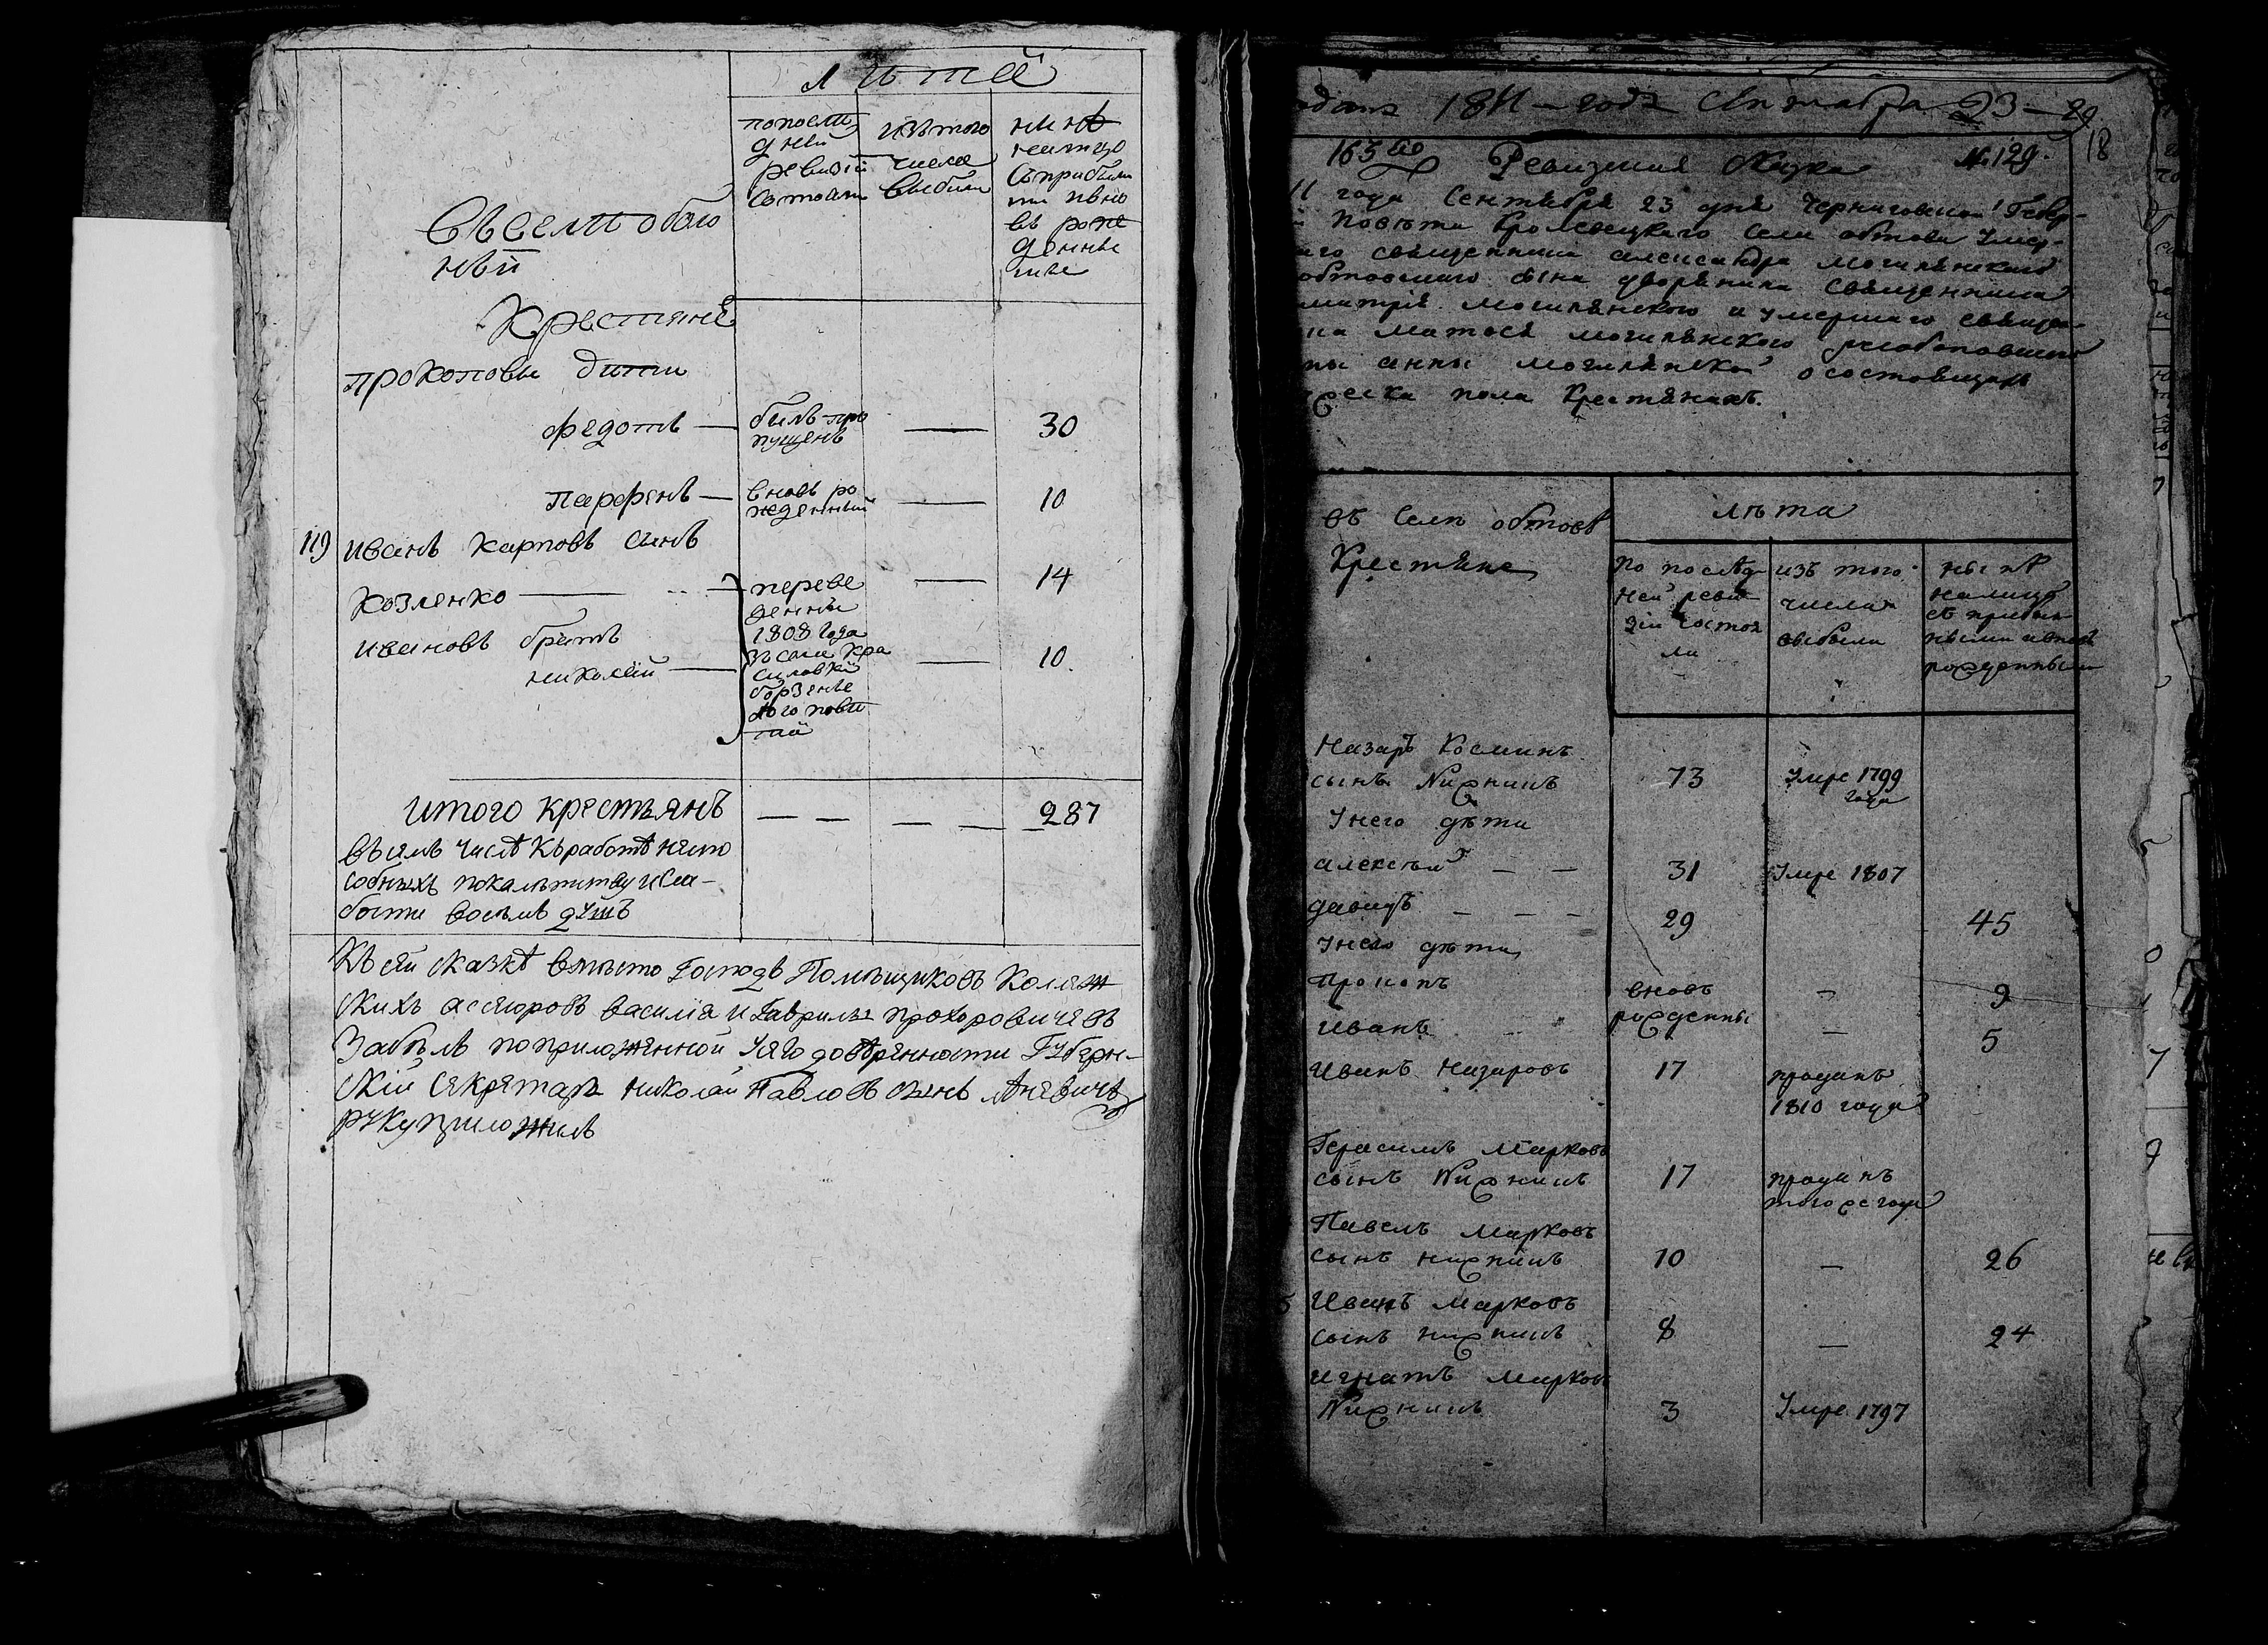 лѣта
по последней ревизіи состояли
изъ того числа выбыли
нынѣ налицо
въ селѣ оболо
нѣи
Крестяне
прокоповы дѣти
Федотъ — билъ пропущенъ — 30
Парфенъ — вновь рожденный — 10
119 Иванъ Карповъ синъ
Козленко — переведенны — 14
ивановъ братъ
николай — 10
1808 года
зъ села Кра
силовки
борзенс
кого повѣ
та
итого крестьянъ — — — — 287
въ семъ числѣ къ работѣ неспо
собныхъ покалѣчству и сла-
бости восемъ душъ
Къ сей сказкѣ вмѣсто Господъ Помѣщиковъ Колеж
скихъ ассесоровъ василія и Гаврилы прохоровичевъ
Забѣлъ по приложенной у сего довѣренности Губерн-
скій секретарь николай Павловъ сынъ
руку приложилъ
1811 года 23 29
18
165 Ревизкая Сказка № 129.
11 года Сентября 23 дня Черниговской Губер-
Повѣта Кролевецкаго села обтова умер-
аго священника александра могилянского
обтовского сына дворянина священника
митрія могилянского и умершаго священ-
на матвея могилянского
ны анны могилянской о состоящихъ
пола крестянахъ.
въ селѣ обтовѣ
Крестяне
лѣта
по послѣд-
ней реви
зіи состоя
ли
изъ того
числа
выбыли
нынѣ
налицо
съ прибыл
ными и вновь
рожденными
Назаръ Косминъ
сынъ Нижникъ 73 Умре 1799
года
У него дѣти
алексѣй — — 31 Умре 1807
давидъ — — — 29 45
У него дѣти
Прокопъ вновь — 9
Иванъ рожденны — 5
Иванъ Назаровъ 17 проданъ
1810 года
Герасимъ Марковъ
сынъ Нижникъ 17 проданъ
того же года
Павелъ Марковъ
сынъ нижникъ 10 — 26
5 Иванъ Марковъ
сынъ нижникъ 8 — 24
Игнатъ Марковъ
Нижникъ 3 Умре 1797